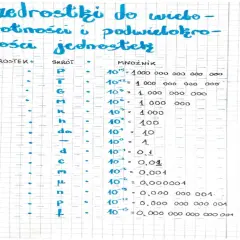 zedrostki do wielo-
otności i podwielokro-
ości jednostek
ROSTEK = SKRÓT = MNOŻNIK
P = 10¹⁵ = 1 000 000 000 000 000
T = 10¹² = 1 000 000 000 000
G = 10⁹ = 1 000 000 000
M = 10⁶ = 1 000 000
k = 10³ = 1 000
h = 10² = 100
da = 10¹ = 10
— = 10⁰ = 1
d = 10⁻¹ = 0,1
c = 10⁻² = 0,01
m = 10⁻³ = 0,001
μ = 10⁻⁶ = 0,000001
n = 10⁻⁹ = 0,000 000 001
p = 10⁻¹² = 0,000 000 000 001
f = 10⁻¹⁵ = 0,000 000 000 000 001